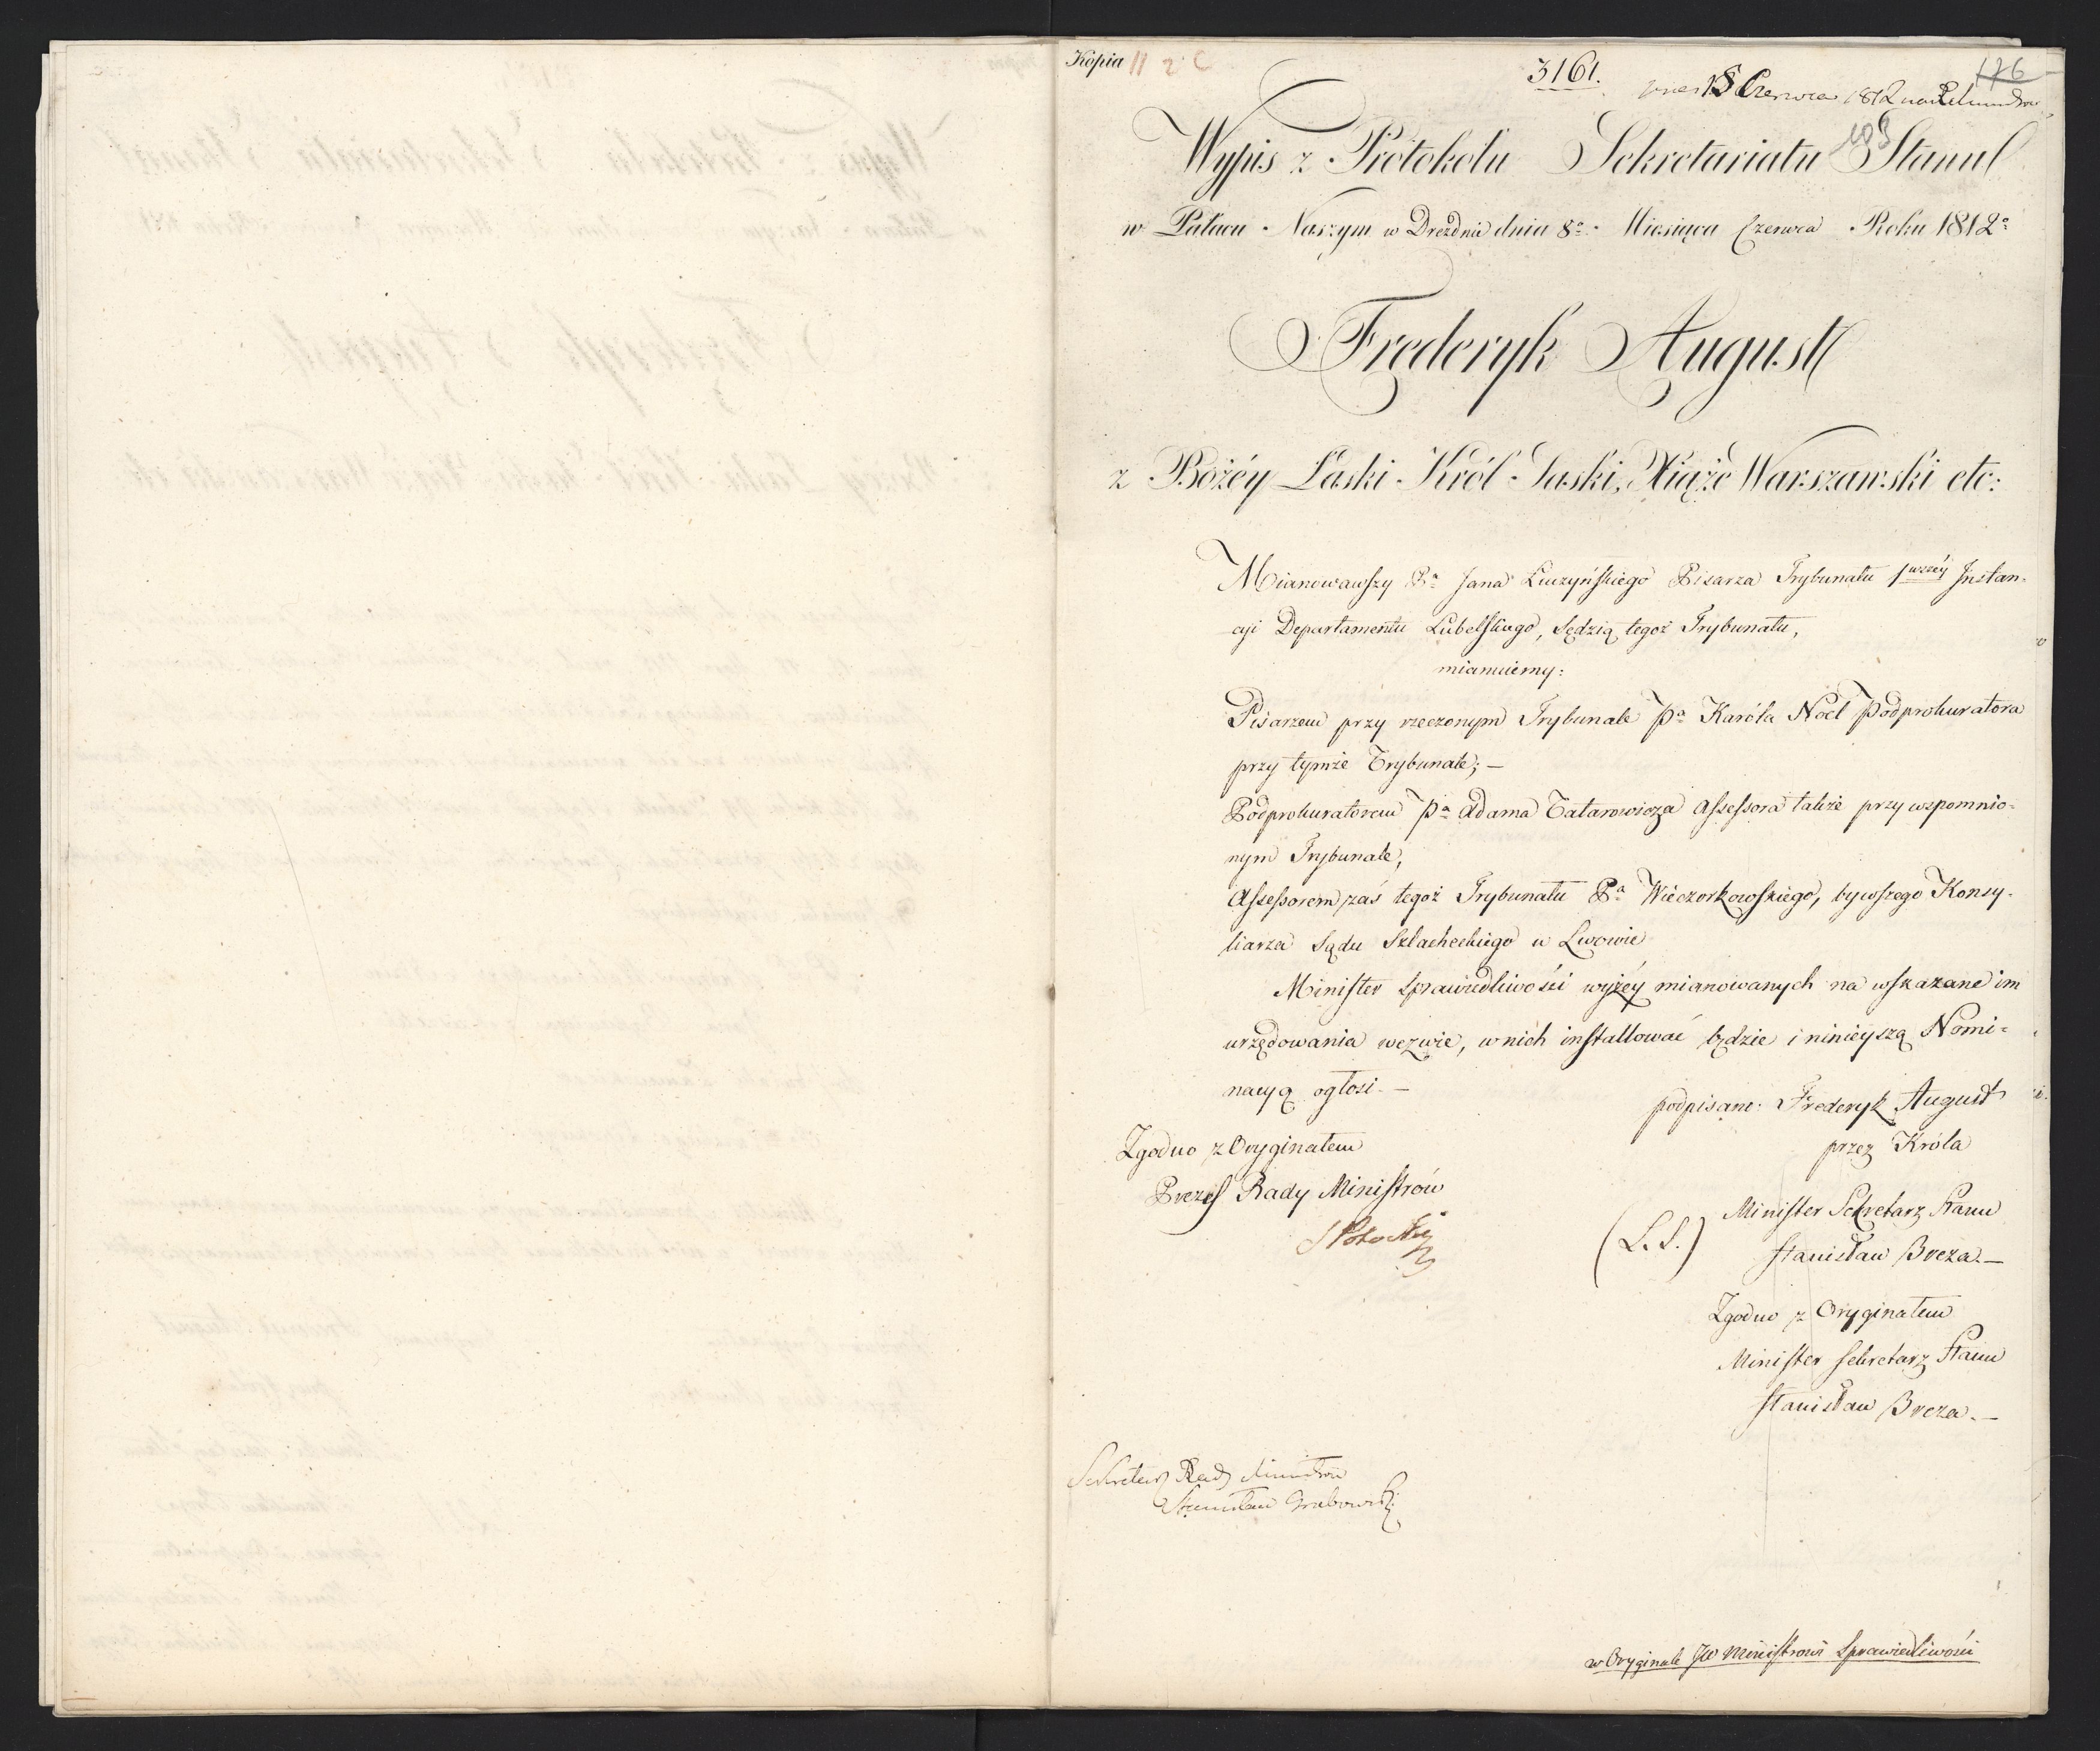 Kopia 11 2 C
3161.
176
18 Czerwca 1812
103
Wypis z Protokołu Sekretariatu Stanu
w Pałacu Naszym w Dreźdnie dnia 8º Miesiąca Czerwca Roku 1812º
Frederyk August
z Bożéy Łaski Król Saski, Xiąże Warszawski etc:
Mianowawszy Pª Jana Łuczyńskiego Pisarza Trybunału 1wszéy Instan-
cyi Departamentu Lubelskiego, Sędzią tegoż Trybunału,
mianuiemy:
Pisarzem przy rzeczonym Trybunale Pª Karóla Noel Podprokuratora
przy tymże Trybunale; —
Podprokuratorem Pª Adama Tatarowicza Assessora także przy wspomnio-
nym Trybunale,
Assessorem zaś tegoż Trybunału Pª Wieczorkowskiego, bywszego Konsy-
liarza Sądu Szlacheckiego w Lwowie
Minister Sprawiedliwości wyżéy mianowanych na wskazane im
urzędowania wezwie, w nich installować będzie i ninieyszą Nomi-
nacyą ogłosi. —
podpisano: Frederyk August
przez Króla
Zgodno z Oryginałem
Prezes Rady Ministrów
S Potocki
Minister Sekretarz Stanu
(L.S.) Stanisław Breza. —
Zgodno z Oryginałem
Minister Sekretarz Stanu
Stanisław Breza. —
Sekretarz Rady Ministrów
Stanisław Grabowski
w Oryginale JW Ministrowi Sprawiedliwości